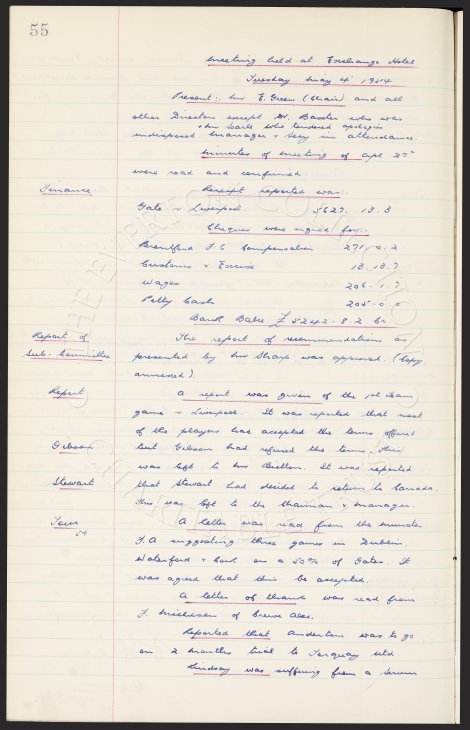 55
Meeting held at Exchange Hotel
Tuesday May 4th 1954
Present:. Mr E. Green (Chair) and all
other Directors except Dr. Baxter who was
& Mr Searle who tendered apologies
indisposed. Manager & Secy in attendance.
Minutes of meeting of Apl 27th
were read and confirmed.
Finance. Receipt reported was:.
Gate v Liverpool. 5627. 13. 3
Cheques were signed for:.
Brentford F.C Compensation 271. 0. 2
Customs & Excise 18. 18. 7
Wages 206. 1. 7
Petty Cash 205. 0. 0
Bank Balce £ 5242. 8. 2 Cr.
Report of The report of recommendations as
Sub. Committee presented by Mr Sharp was approved. (Copy
annexed).
Report A report was given of the 1st team
game v Liverpool. It was reported that most
of the players had accepted the terms offered
Gibson but Gibson had refused the terms, this
was left to Mr Britton. It was reported
Stewart that Stewart had decided to return to Canada.
This was left to the Chairman & Manager.
Tour A letter was read from the Munster
54
F.A suggesting three games in Dublin
Waterford & Cork on a 50% of Gates. It
was agreed that this be accepted.
A letter of thanks was read from
of Crewe Alex.
Reported that Anderton was to go
on 2 months trial to Torquay Utd.
Lindsay was suffering from a